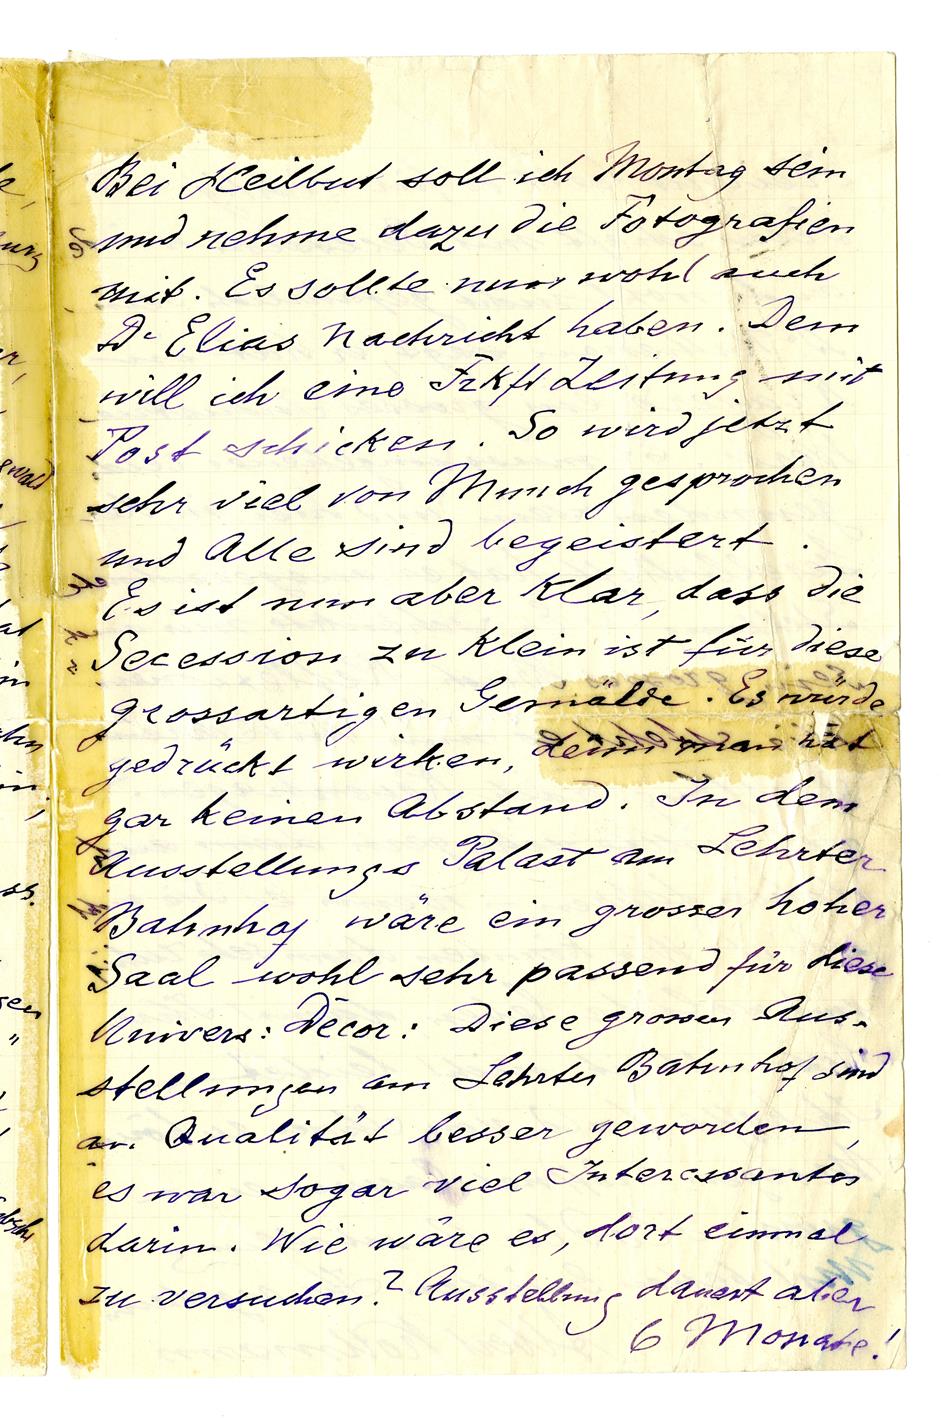 Bei Heilbut soll ich Montag sein
und nehme dazu die Fotografien
mit. Es sollte nun wohl auch
Dr Elias Nachricht haben. Dem
will ich eine Frkft Zeitung mit
Post schicken. So wird jetzt
sehr viel von Munch gesprochen
und Alle sind begeistert.
Es ist nun aber klar, dass die
Secession zu klein ist für diese
grossartigen Gemälde. Es würde
gedrückt wirken, denn man hat
gar keinen Abstand. In dem
Ausstellungs Palast am Lehrter
Bahnhof wäre ein grosser hoher
Saal wohl sehr passend für diese
Univers: Décor: Diese grossen Aus-
stellungen am Lehrter Bahnhof sind
an Qualität besser geworden,
es war sogar viel Interessantes
darin. Wie wäre es, dort einmal
zu versuchen? Ausstellung dauert aber
6 Monate!